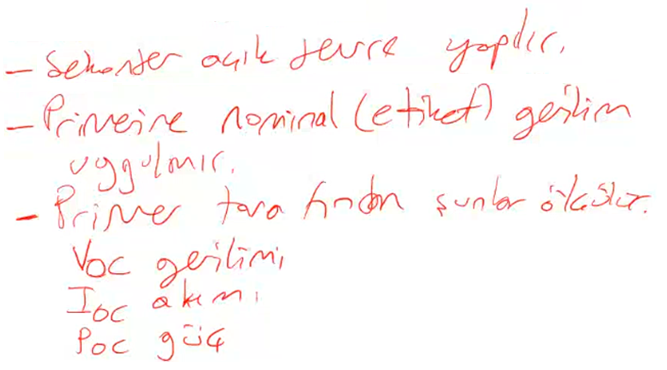 - Sekonder açık devre yapılır.
- Primerine nominal (etiket) gerilim
uygulanır.
- Primer tarafından şunlar ölçülür.
Voc gerilimi
Ioc akımı
Poc güç